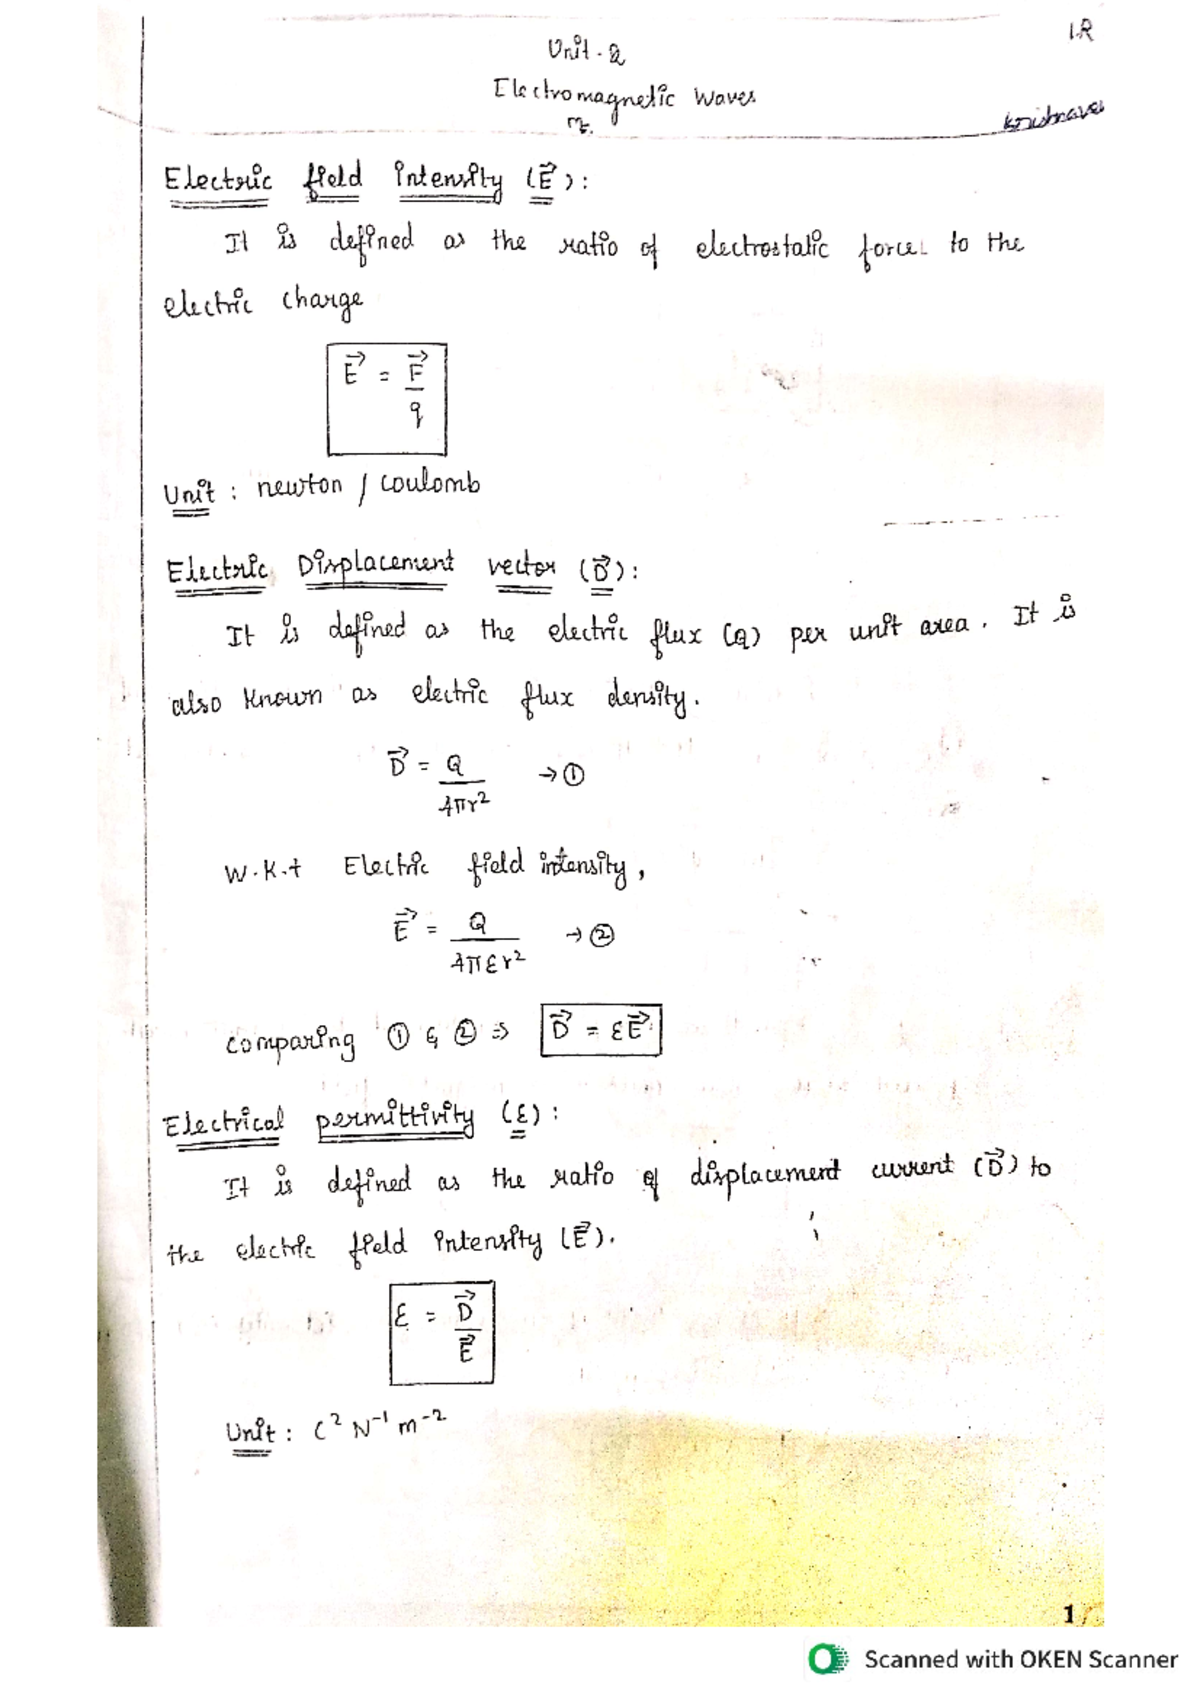 I.R
Unit - 2
Electromagnetic Waves
Electric field intensity (E⃗) :
It is defined as the ratio of electrostatic force to the
electric charge
E⃗ = F⃗ / q
Unit : newton / coulomb
Electric Displacement vector (D⃗) :
It is defined as the electric flux (Q) per unit area. It is
also known as electric flux density.
D⃗ = Q / 4πr² → ①
W.K.t Electric field intensity,
E⃗ = Q / 4πεr² → ②
comparing ① & ② ⇒ D⃗ = εE⃗
Electrical permittivity (ε) :
It is defined as the ratio of displacement current (D⃗) to
the electric field intensity (E⃗).
ε = D⃗ / E⃗
Unit : C² N⁻¹ m⁻²
1
Scanned with OKEN Scanner